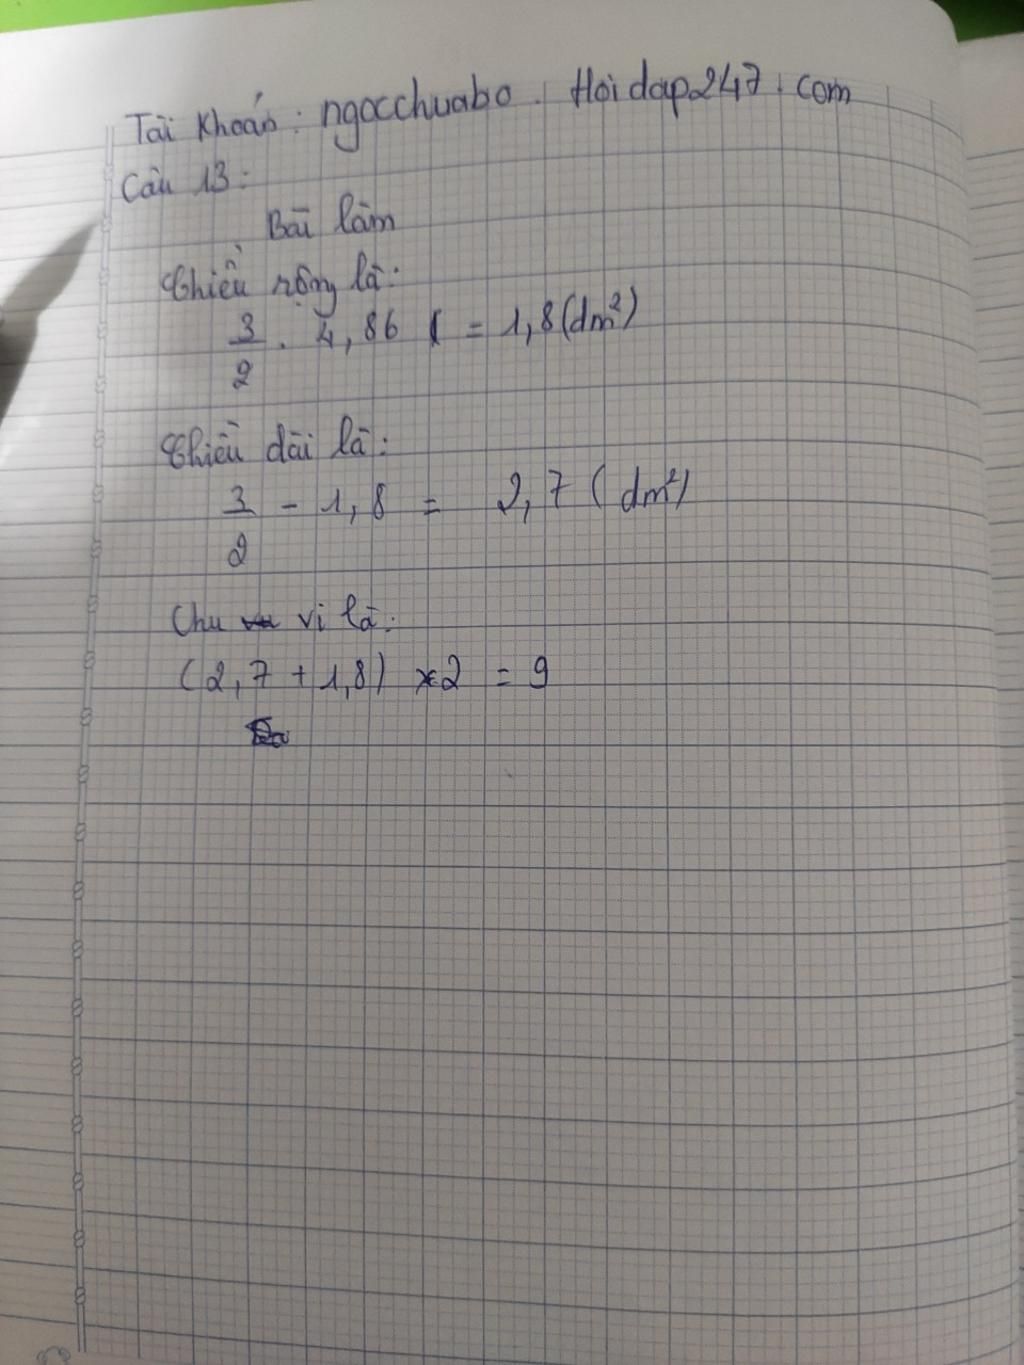 Tài Khoản: ngocchuabo. Hoidap247.com
Câu 13:
Bài làm
Chiều rộng là:
3/2 . 4,86 = 1,8 (dm²)
Chiều dài là:
3/2 - 1,8 = 2,7 (dm²)
Chu vi là:
(2,7 + 1,8) x 2 = 9